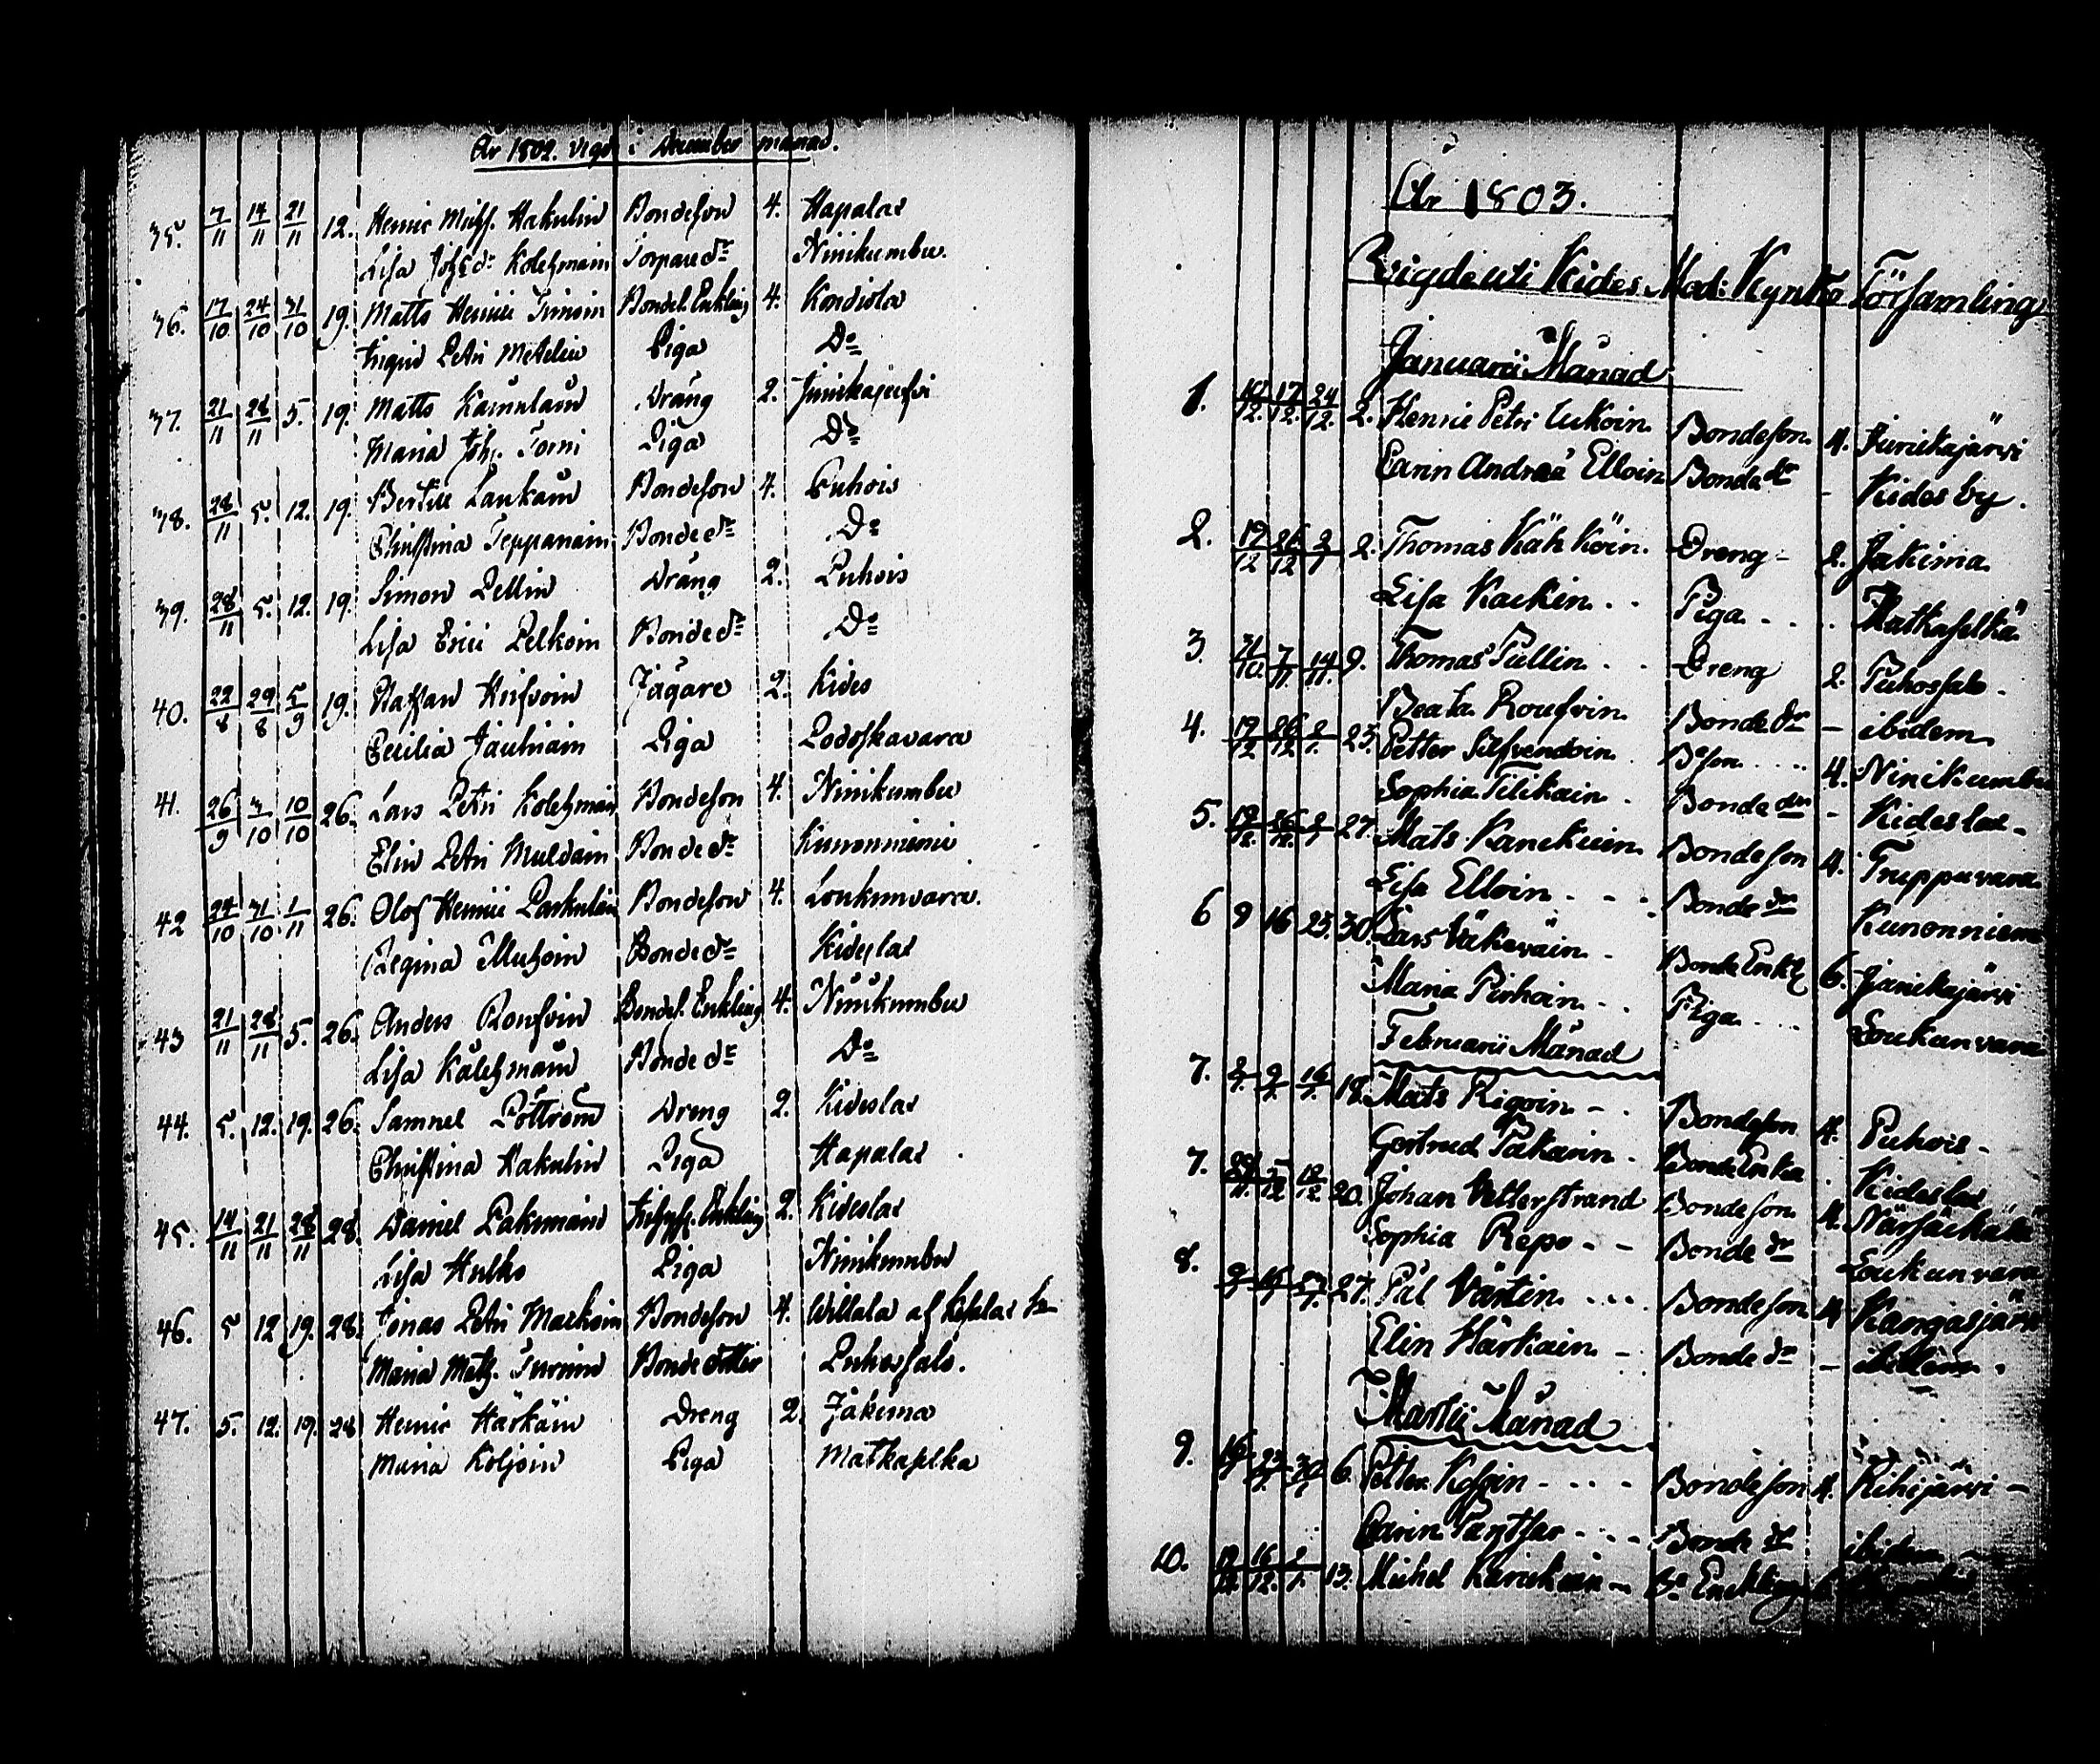 År 1802. vigde i December månad.
35. 7/11 14/11 21/11 12. Henric Michs. Hakulin Bondeson 4. Hapalax
Lisa Johs dr Kolehmain Torpare dr Niinikumbu.
36. 17/10 24/10 31/10 19. Matts Henrici Bondes. Enkling 4. Kondista
Ingrid Petri Metelin Piga Do
37. 21/11 28/11 5. 19. Matts Dräng 2.
Maria Joh. Torni Piga Do
38. 28/11 5. 12. 19. Bertil Laukain Bondeson 4. Puhois
Christina Teppanain Bonde dr Do
39. 28/11 5. 12. 19. Simon Pellin Dräng 2. Puhois
Lisa Erici Pelkoin Bonde dr Do
40. 22/8 29/8 5/9 19. Staffan Hirfvoin Jägare 2. Kides
Cecilia Piga Podoskavara
41. 26/9 3/10 10/10 26. Lars Petri Kolehmain Bondeson 4. Niinikumbu
Elin Petri Muldain Bonde dr Kunonniemi
42 24/10 31/10 1/11 26. Olof Henrici Bondeson 4. Loukunvara.
Regina Muhoin Bonde dr Kideslax
43 21/11 28/11 5. 26. Anders Roufvin Bondes. Enkling 4. Niinikumbu
Lisa Kålehmain Bonde dr Do
44. 5. 12. 19. 26. Samuel Pöttrönd Dreng 2. Kideslax
Christina Hakulin Piga Hapalax
45. 14/11 21/11 28/11 28. Daniel Pakarinain Enkling 2. Kideslax
Lisa Hulko Piga Niinikumbu
46. 5 12 19. 28. Jonas Petri Bondeson 4. Willala af
Maria Matts. Turunin Bonde dotter Puhossalo.
47. 5. 12. 19. 28 Henric Härkäin Dreng 2. Jakima
Maria Koljoin Piga Matkaselka
År 1803.
Vigde uti Kides Mod: Kyrko Församling
Januarii Månad
1. 10/12. 17/12. 24/12. 2. Henric Petri Lukoin. Bondeson. 4. Juurikajärvi
Carin Andreæ Elloin Bonde dr - Kides by.
2. 19/12 26/12 2/1 2. Thomas Kähköin. Dreng - 2. Jakima.
Lisa Kackin. . . Piga. - . . . Matkaselkä.
3. 31/10. 7/11. 14/11. 9. Thomas Pullin. . . Dreng 2. Puhossalo.
Beata Roufvin. Bonde dr - ibidem
4. 19/12 26/12 2/1. 23. Petter Silfvendoin. Bdson. . . . 4. Niinikumbu
Sophia Tilikain. Bonde dr - Kideslax.
5. 19/12. 26/12. 2/1 27. Mats Kanckuin. Bondeson 4. Truppuvara
Lisa Elloin. - - . Bonde dr Kunonniemi
6 9 16 23. 30. Lars Väkeväin. - Bonde Enkl. 6. Juurikajärvi
Maria Pirhoin - - Piga. . . . Loukunvara
Februarii Månad
7. 2/1. 9/1. 16/1. 18. Mats Rigoin. - . Bondeson 4. Puhois -
Gertrud Pakarin. . Bonde Enka . Kideslax
7. 28/11. 5/12 12/12 20. Johan Vetterstrand Bondeson 4.
Sophia Repo. - - Bonde dr Loukunvara
8. 27. Pål Värtin. . . . Bondeson 4. Kangasjärvi
Elin Härkäin - . Bonde dr - ibidem.
Martii Månad
9. 16/1 23/1. 30/1 6. Petter Kosoin - . . . Bondeson 4. Rihijärvi -
Carin Pantsar - . . . Bonde dr ibidem
10. 13. Michel Bd Enckling